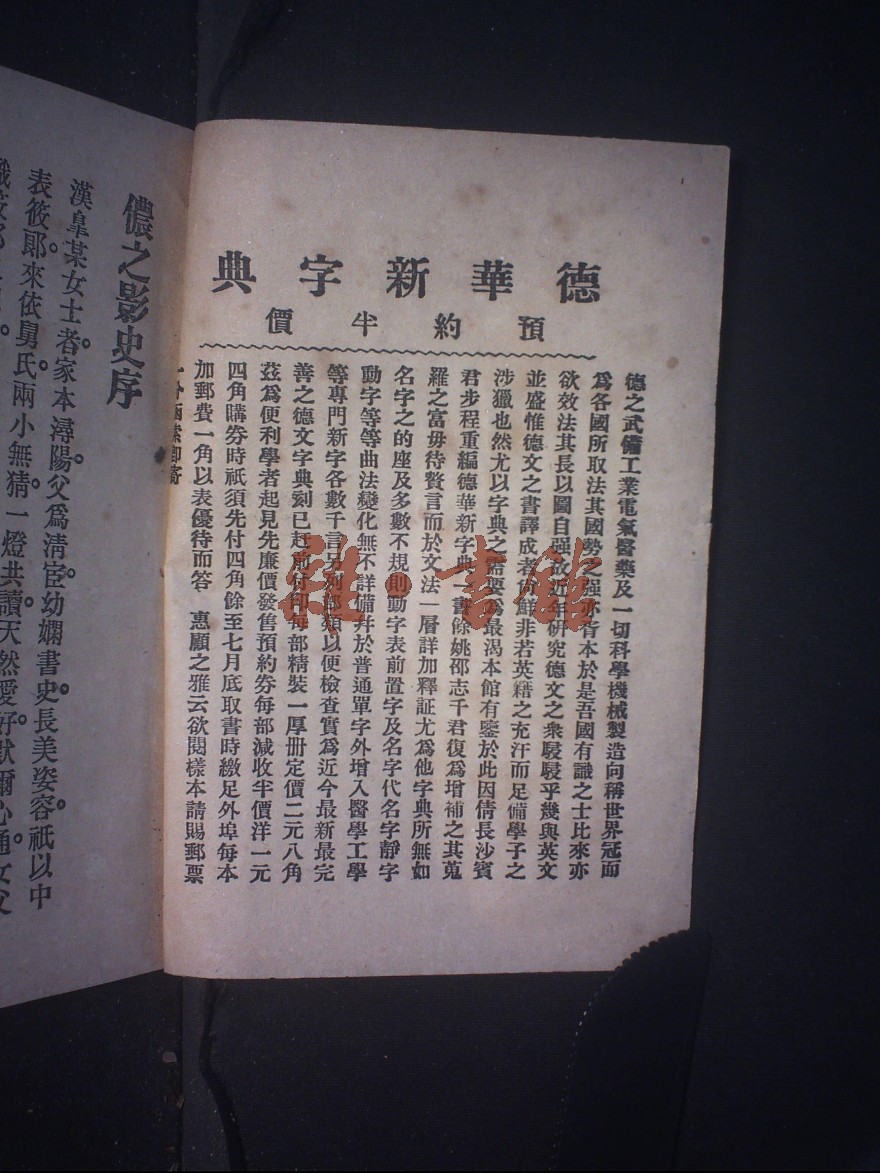 德華新字典
預約半價
德之武備工業電氣醫藥及一切科學機械製造向稱世界冠而
為各國所取法其國勢之强亦皆本於是吾國有識之士比來亦
欲效法其長以圖自强故近年研究德文之衆駸駸乎幾與英文
並盛惟德文之書譯成者尚鮮非若英籍之充汗而足備學子之
涉獵也然尤以字典之需要為最渴本館有鑒於此因倩長沙賓
君步程重編德華新字典一書餘姚邵志千君復為增補之其蒐
羅之富毋待贅言而於文法一層詳加釋証尤為他字典所無如
名字之的座及多數不規則動字表前置字及名字代名字靜字
動字等等曲法變化無不詳備并於普通單字外增入醫學工學
等專門新字各數千言另列部類以便檢查實為近今最新最完
善之德文字典刻已赶前付印每部精裝一厚册定價二元八角
茲為便利學者起見先廉價發售預約券每部減收半價洋一元
四角購券時祇須先付四角餘至七月底取書時繳足外埠每本
加郵費一角以表優待而答 惠顧之雅云欲閱樣本請賜郵票
儂之影史序
漢臯某女士者。家本潯陽父爲清宦。幼嫻書史。長美姿容。祇以中
表筱郎來依舅氏。兩小無猜。一燈共讀。天然愛好。默爾心通。女父
雅·書館